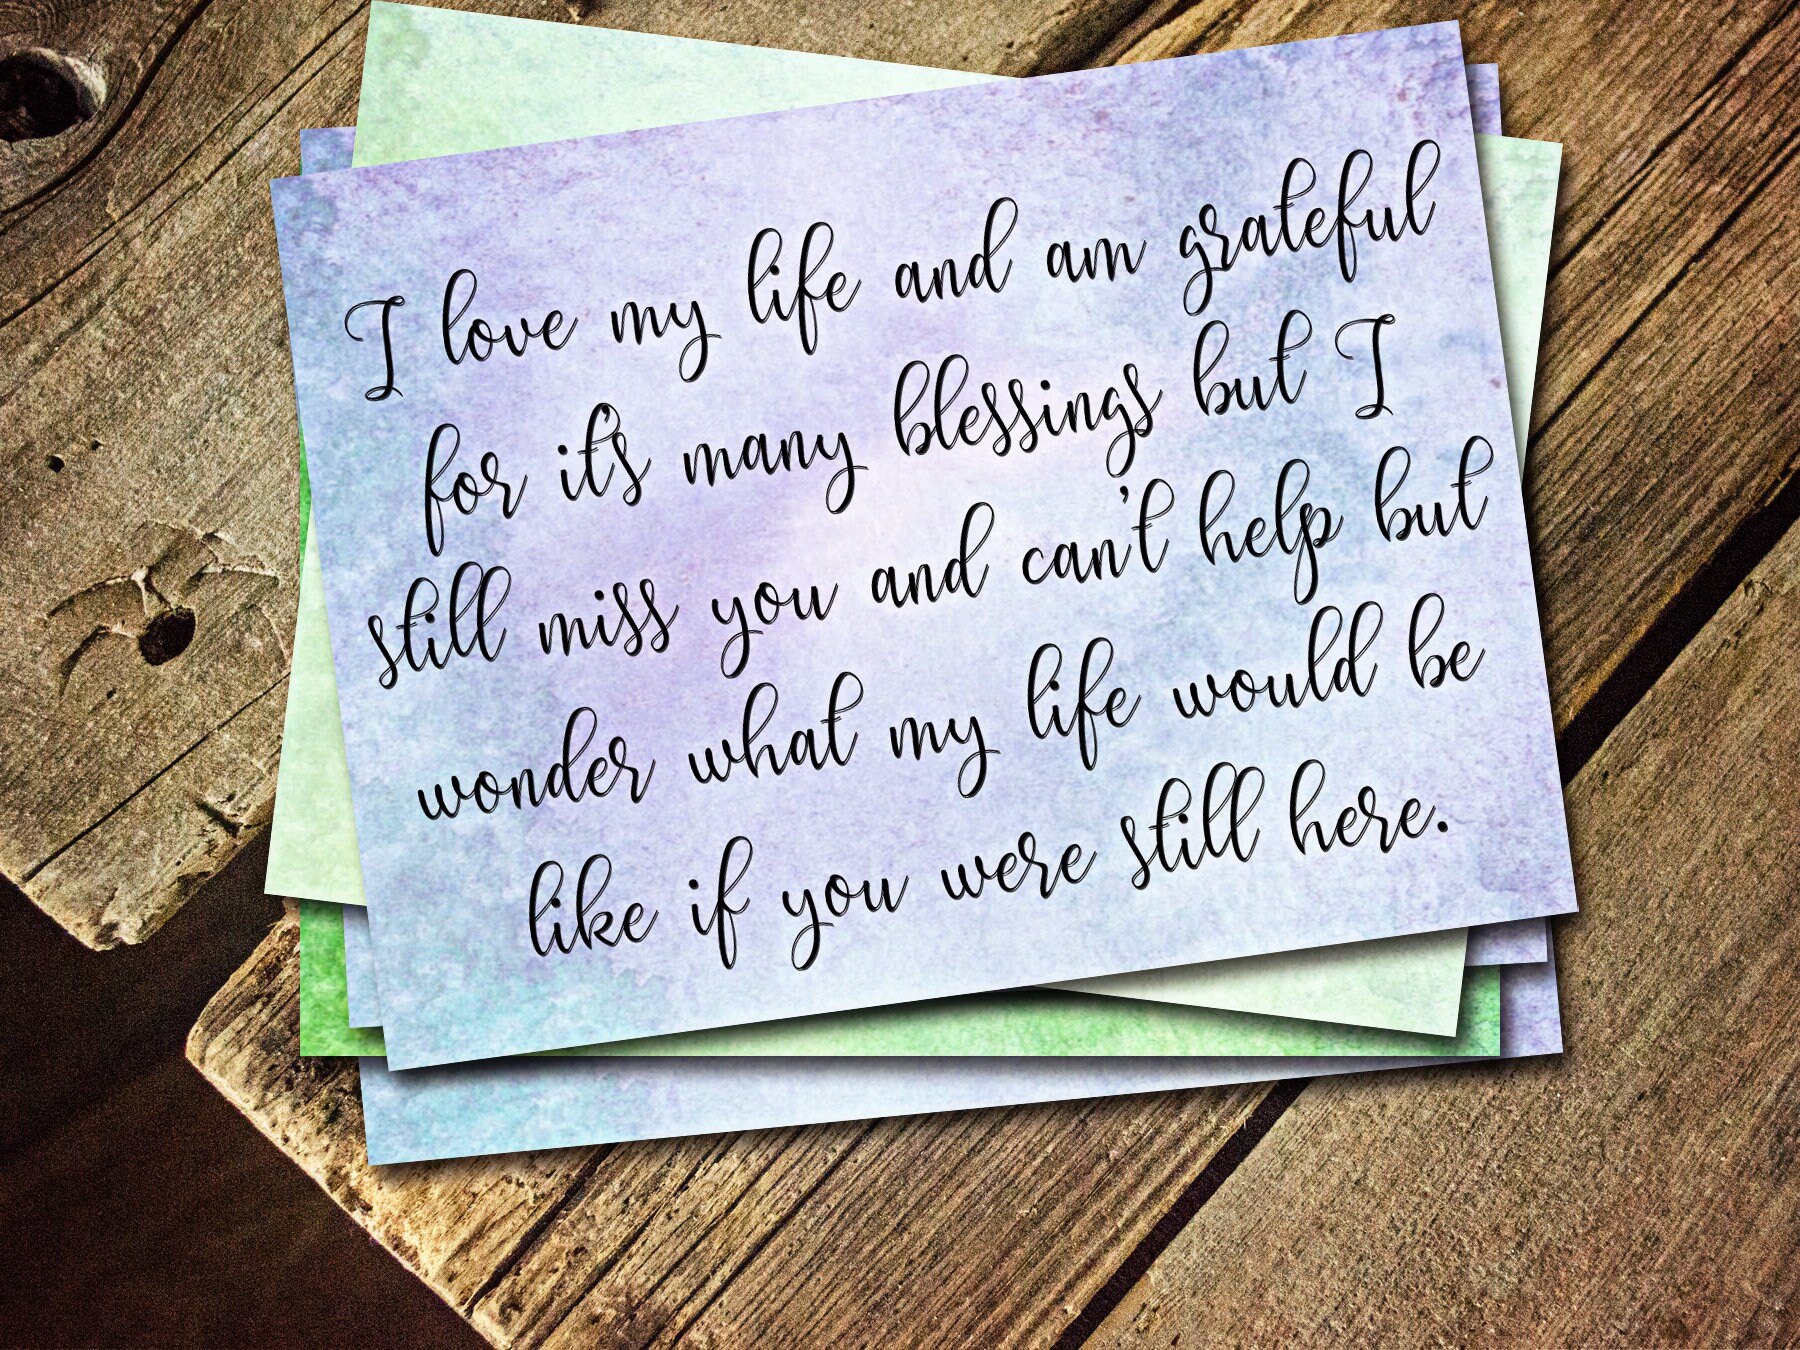 I love my life and am grateful
for it's many blessings but I
still miss you and can't help but
wonder what my life would be
like if you were still here.